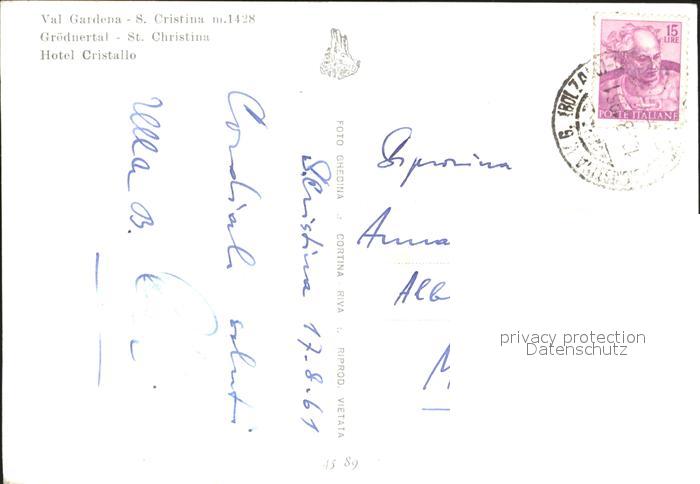 Val Gardena - S. Cristina m.1428
Grödnertal - St. Christina
Hotel Cristallo
15
LIRE
POSTE ITALIANE
S. Cristina 17.8.61
Cordiali saluti
Ulla B.
FOTO GHEDINA - CORTINA RIVA - RIPROD. VIETATA
Signorina
Anna
Alb
M
privacy protection
Datenschutz
45 89